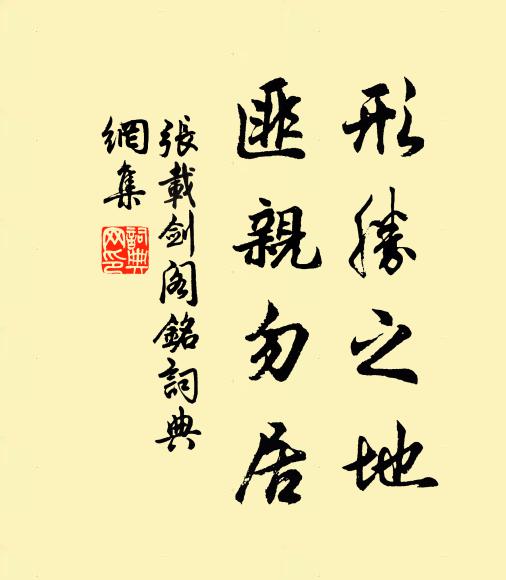 形勝之地
匪親勿居
張載剑阁銘詞典
網集
詞典
网印